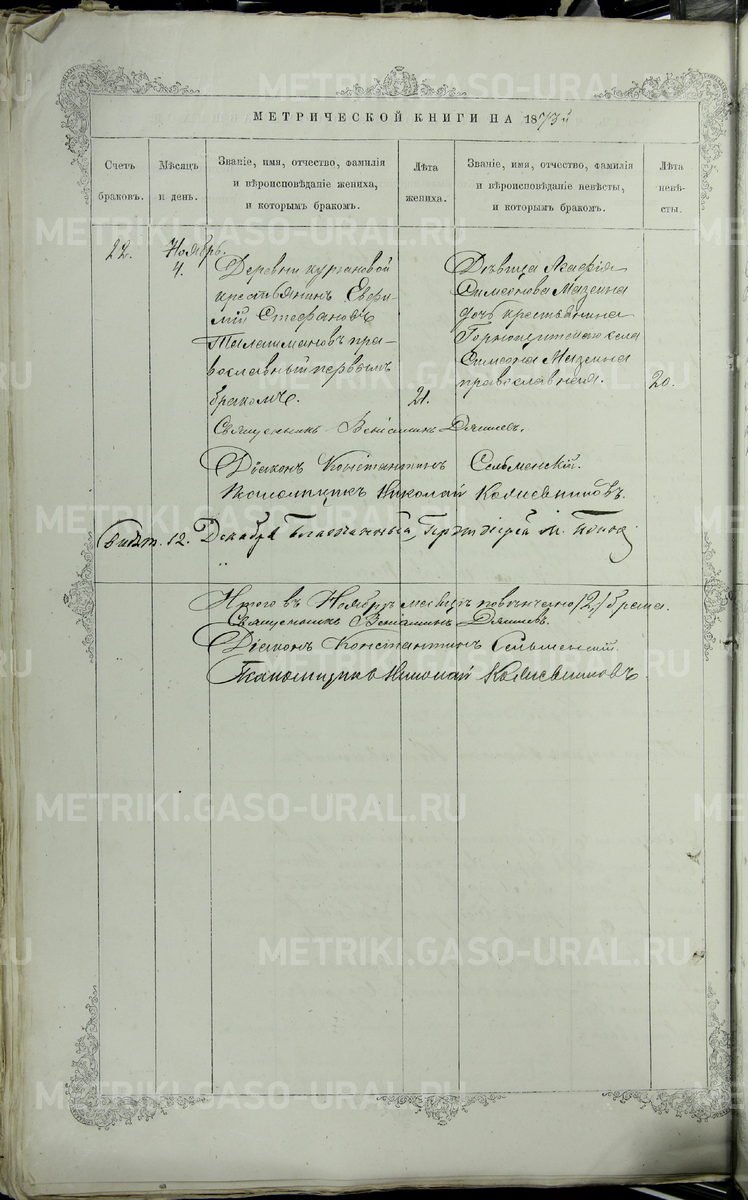 МЕТРИЧЕСКОЙ КНИГИ НА 1873й
Счетъ браковъ.
Мѣсяцъ и день.
Званіе, имя, отчество, фамилія и вѣроисповѣданіе жениха, и которымъ бракомъ.
Лѣта жениха.
Званіе, имя, отчество, фамилія и вѣроисповѣданіе невѣсты, и которымъ бракомъ.
Лѣта невѣсты.
22.
Ноябрь.
4.
Деревни Кургановой
крестьянинъ Евѳи-
мій Стефановъ
Талашмановъ пра-
вославный первымъ
бракомъ.
21.
Дѣвица Агафія
Симеонова Мазеина
дочь крестьянина
Горнощитскаго села
Симеона Мазеина
православная.
20.
Священникъ Веніаминъ
Діаконъ Константинъ Сельменскій.
Псаломщикъ Николай Колесниковъ.
12. Декабря Благочинный,
Итого въ Ноябрѣ месяцѣ повѣнчано /2,/ брака.
Священникъ Веніаминъ
Діаконъ Константинъ Сельменскій.
Псаломщикъ Николай Колесниковъ.
METRIKI.GASO-URAL.RU